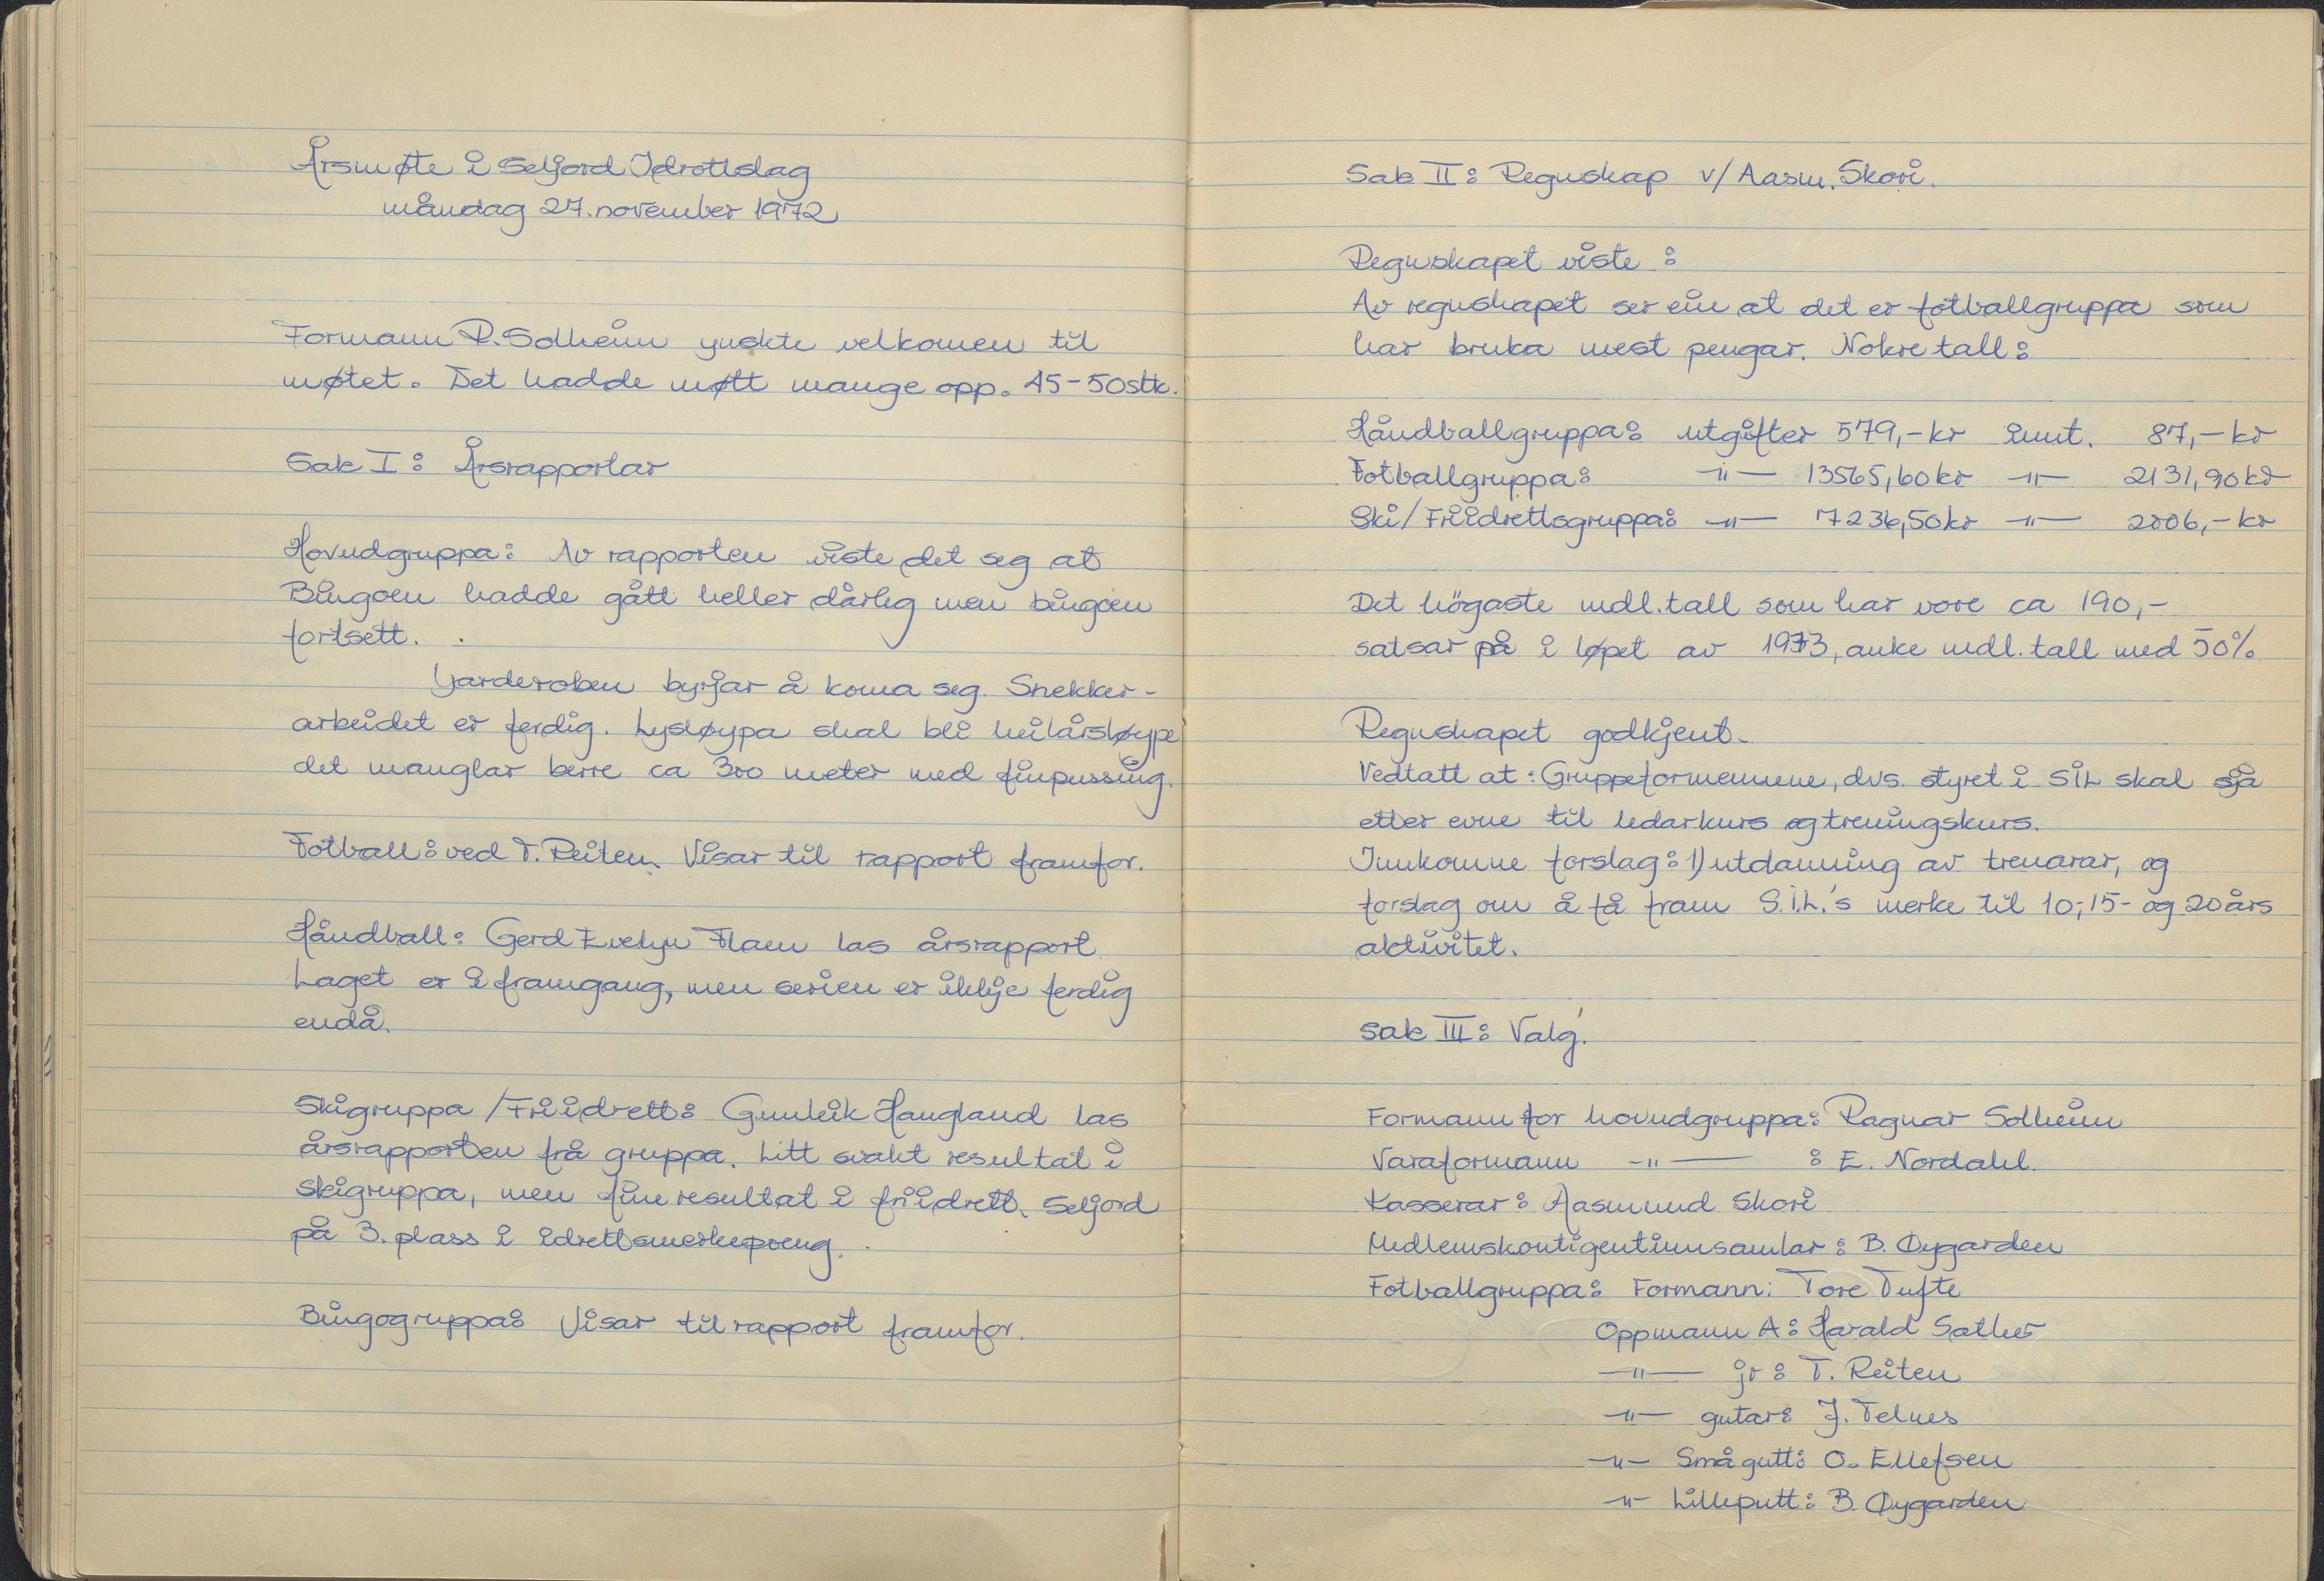 Årsmøte i Seljord Idrottslag
måndag 27. november 1972
Formann R. Solheim ynskte velkomen til
møtet. Det hadde møtt mange opp. 45-50stk.
Sak I: Årsrapportar
Hovudgruppa: Av rapporten viste det seg at
Bingoen hadde gått heller dårleg men bingoen
fortsett.
Garderoben byrjar å koma seg. Snekker-
arbeidet er ferdig. Lysløypa skal bli heilårsløype
det manglar berre ca 300 meter med finpussing.
Fotball: ved T. Reiten. Visar til rapport framfor.
Håndball: Gerd Evelyn Flam las årsrapport.
Laget er i framgang, men serien er ikkje ferdig
endå.
Skigruppa /Friidrett: Gunleik Haugland las
årsrapporten frå gruppa. Litt svakt resultat i
skigruppa, men fine resultat i friidrett. Seljord
på 3. plass i idrettsmerkepoeng.
Bingogruppa: Visar til rapport framfor.
Sak II: Regnskap v/ Aasm. Skori.
Regnskapet viste :
Av regnskapet ser ein at det er fotballgruppa som
har bruka mest pengar. Nokre tall:
Håndballgruppa: utgifter 579,- kr innt. 87,- kr
Fotballgruppa: -"- 13565,60 kr -"- 2131,90 kr
Ski/Friidrettsgruppa: -"- 7236,50 kr -"- 2006,- kr
Det högaste mdl.tall som har vore ca 190,-
satsar på i løpet av 1973, auke mdl. tall med 50%
Regnskapet godkjent.
Vedtatt at: Gruppeformennene, dvs. styret i SIL skal sjå
etter evne til ledarkurs og treningskurs.
Innkomne forslag: 1) utdanning av trenarar, og
forslag om å få fram S.I.L.'s merke til 10,- 15- og 20års
aktivitet.
Sak III: Valg.
Formann for hovudgruppa: Ragnar Solheim
Varaformann -"- : E. Nordahl.
Kasserar: Aasmund Skori
Medlemskontigentinnsamlar: B. Øygarden
Fotballgruppa: Formann: Tore Tufte
Oppmann A: Harald Sather
-"- jr: T. Reiten
-"- gutar: J. Telnes
-"- Smågutt: O. Ellefsen
-"- Lilleputt: B. Øygarden